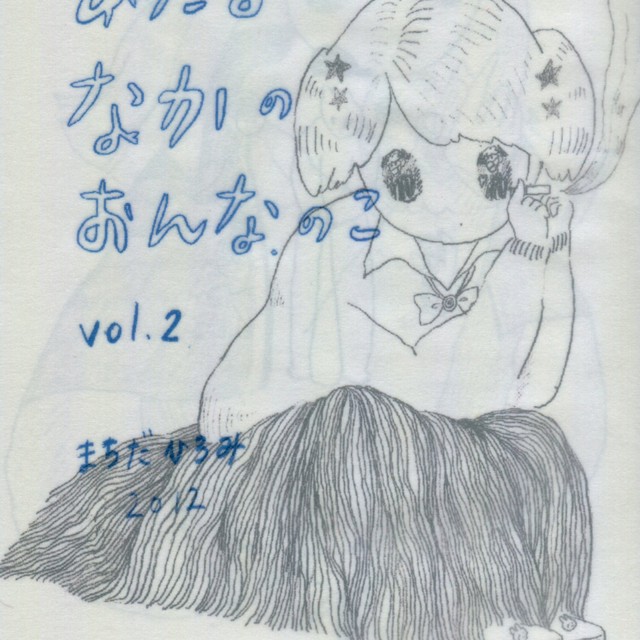 なかの
おんなのこ
vol.2
まちだひろみ
2012